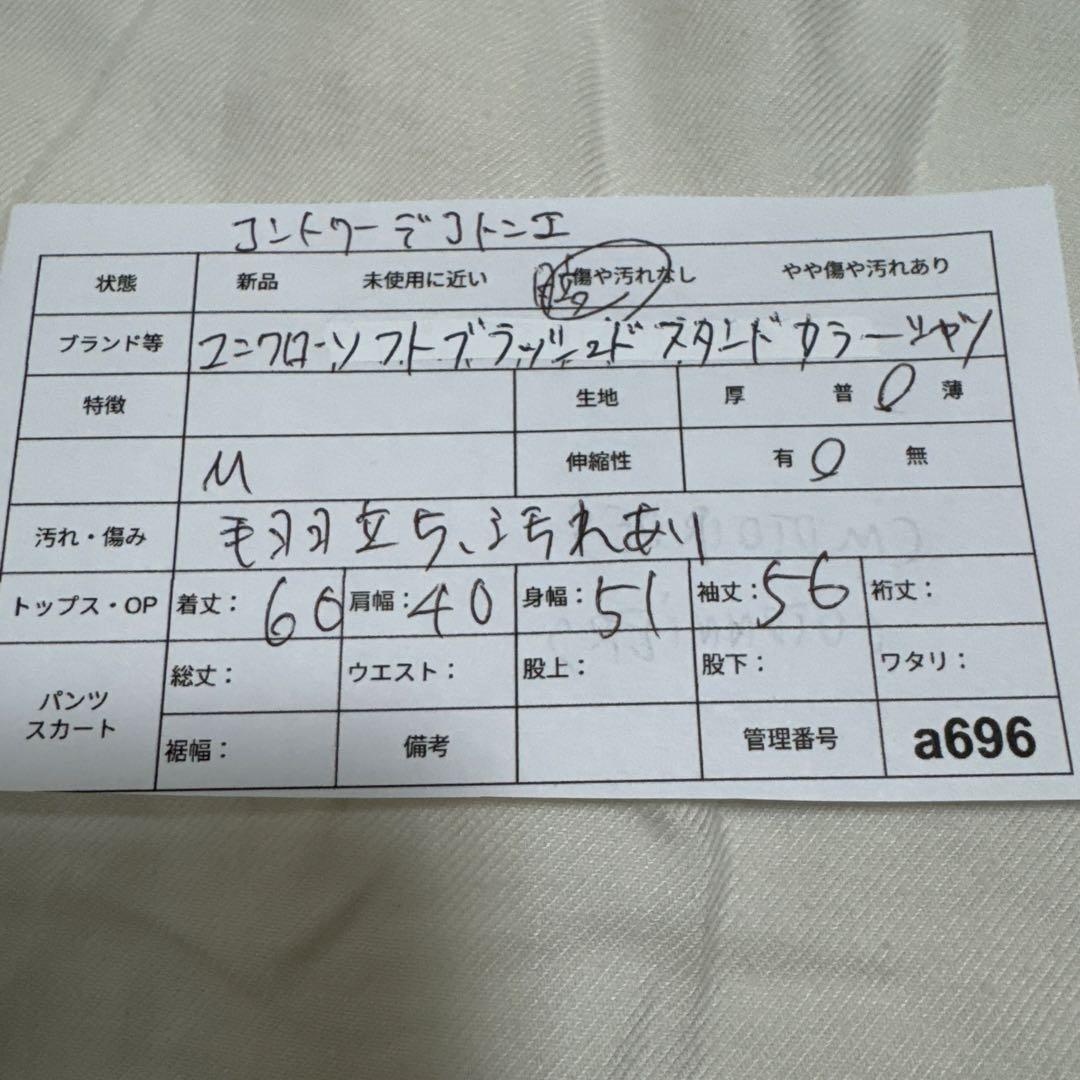 コントワーデコトニエ
状態 新品 未使用に近い 傷や汚れなし やや傷や汚れあり
ブランド等 ユニクロ ソフトブラッシュドスタンドカラーシャツ
特徴 生地 厚 普 薄
M 伸縮性 有 無
汚れ・傷み 毛羽立ち、汚れあり
トップス・OP 着丈： 60 肩幅： 40 身幅： 51 袖丈： 56 裄丈：
パンツ スカート 総丈： ウエスト： 股上： 股下： ワタリ：
裾幅： 備考 管理番号 a696